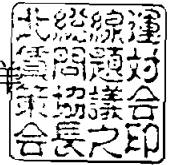 北総線運
賃問題対
策協議会
会長之印